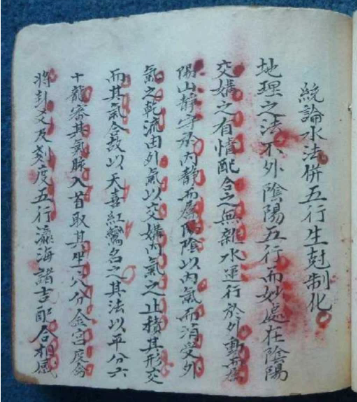 統論水法併五行生尅制化
地理之法不外陰陽五行而妙處在陰陽
交媾之有情配合之無雜水運行於外動而為
陽山靜守於內靜而屬陰陰以內氣而消受外
氣之乾流由外氣以交媾內氣之止積其形交
而其氣合故以天喜紅鸞名之其法以平分六
十龍審其氣脈入首取其坐穴分金宮度会
將卦爻及刻度五行瀛海諸吉配合相感